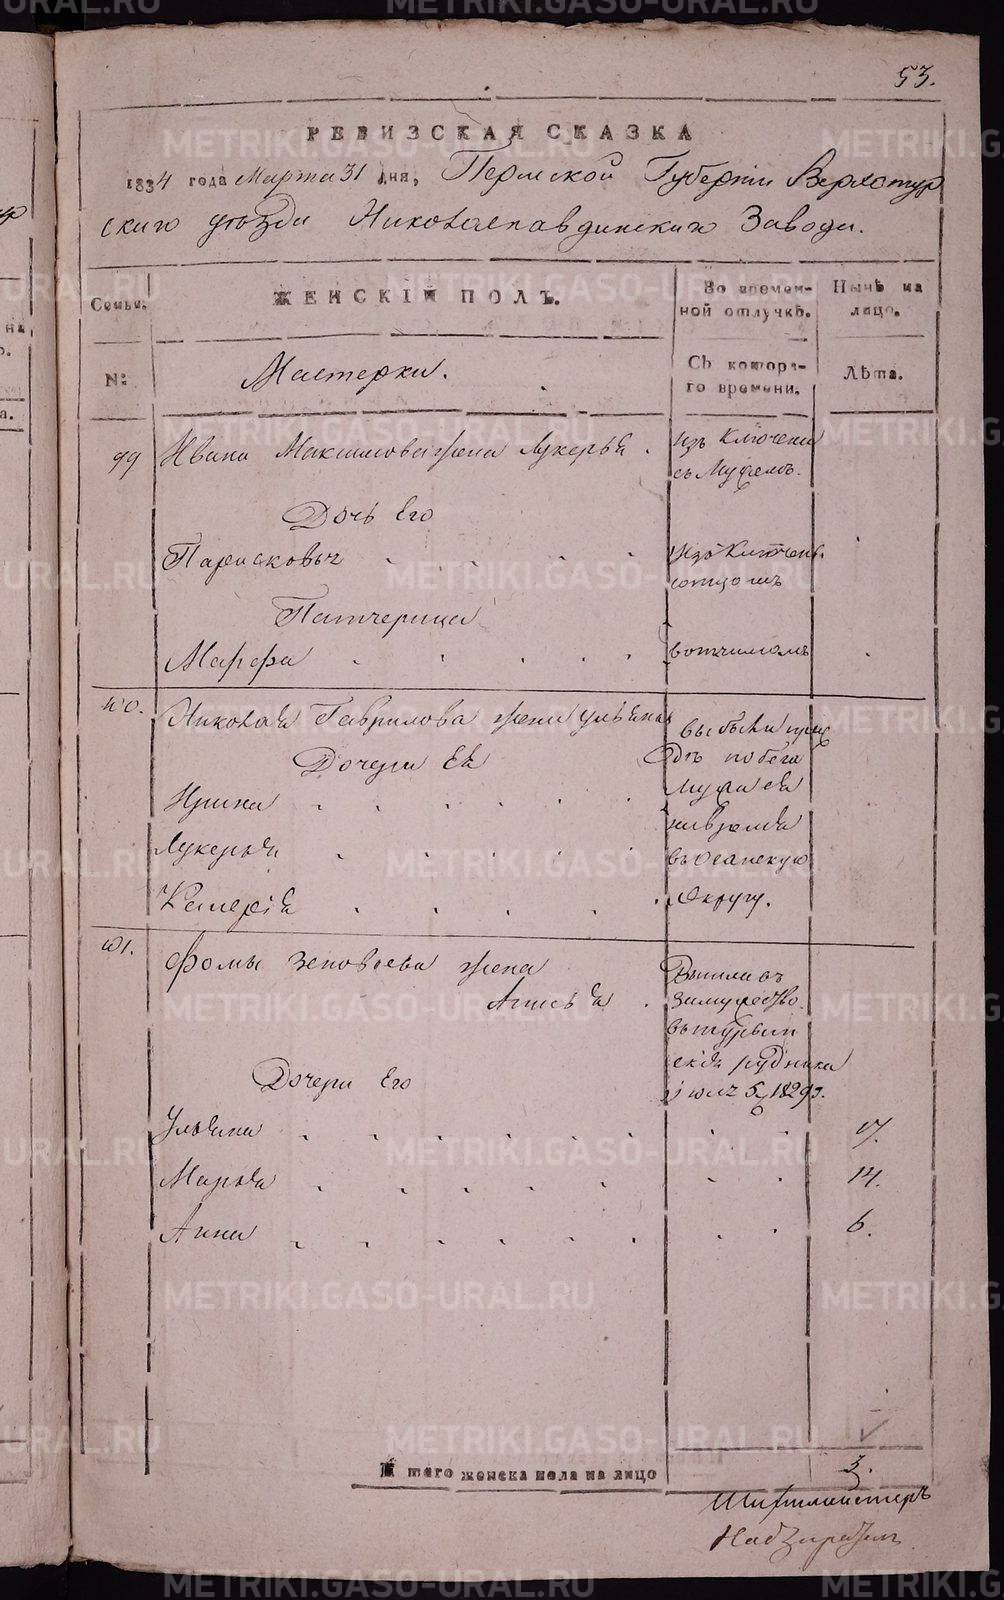 53.
РЕВИЗСКАЯ СКАЗКА
1834 года Марта 31 дня, Пермской Губернии Верхотур
скаго уѣзда Николаепавдинскаго Завода.
Семьи. ЖЕНСКІЙ ПОЛЪ. Во времен-
ной отлучкѣ. Нынѣ на
лицо.
№: Мастерки. Съ котора-
го времени. Лѣта.
99 Ивана Максимова жена Лукерья изъ Ключены
съ Мужемъ.
Дочь Его
Парасковья изъ Ключен.
сотцомъ
Патчерица
Марфа вотчимомъ
100. Николая Гаврилова жена ульяна выбыли
Дочери Ея побега
Ирина мужа ея
Лукерья
въ Осинскую
Валерія Округу.
101. Фомы Зеновьева жена
Анисья Вышли въ
замужество
втурьин
скія рудника
Дочери Его
1829 г.
Ульяна 17.
Марья 14.
Анна 6.
И того женска пола на лицо 3.
Шихтмейстеръ
Надзиратель
METRIKI.GASO-URAL.RU